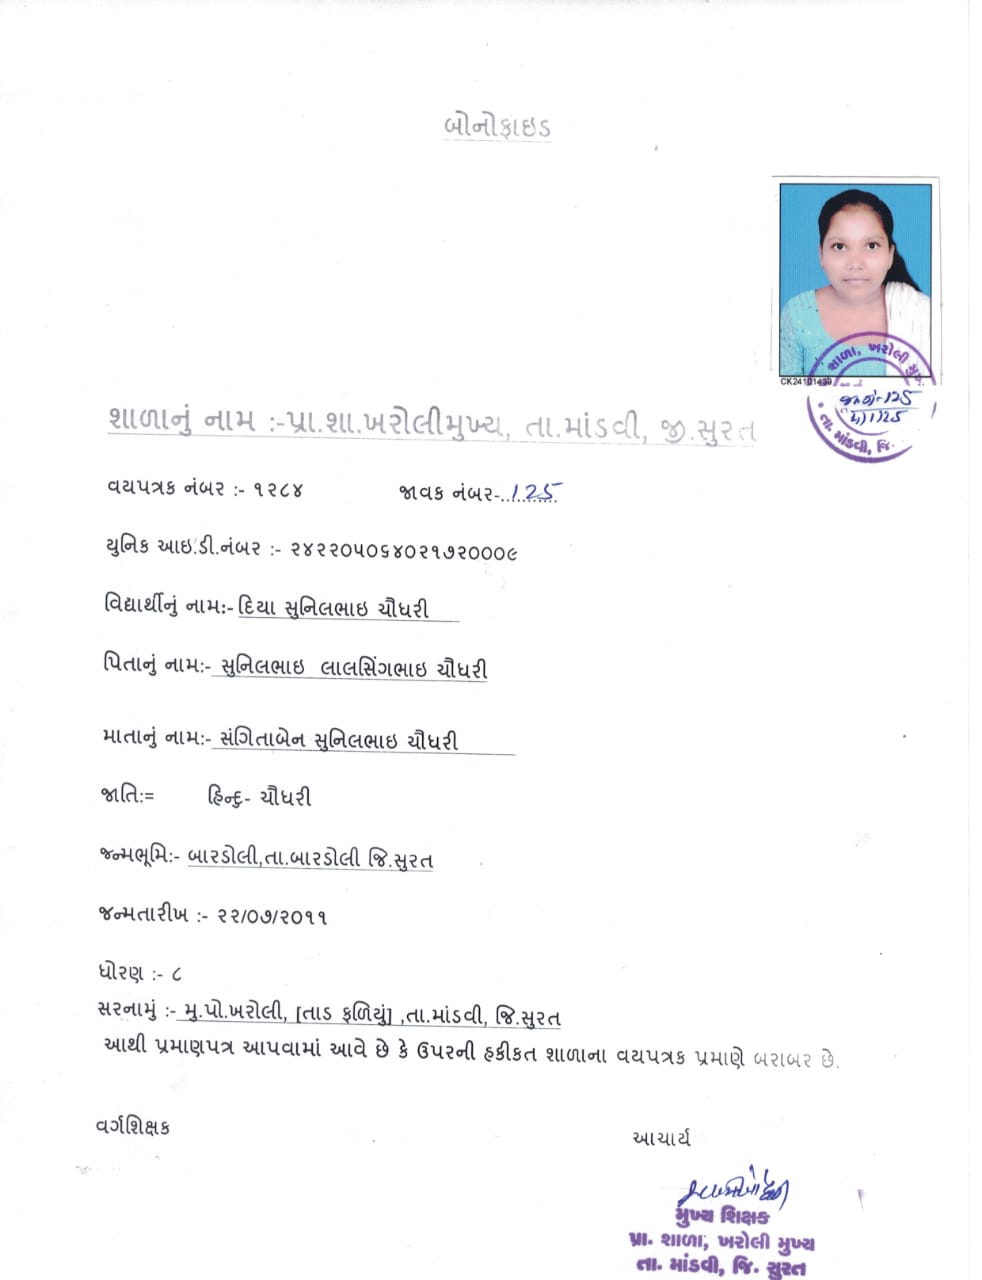 બોનોફાઇડ
CK24101439
શાળા, ખરોલી મુખ્ય
જા.નં-125
4/1/25
તા. માંડવી, જિ.
શાળાનું નામ :-પ્રા.શા.ખરોલીમુખ્ય, તા.માંડવી, જી.સુરત
વયપત્રક નંબર :- ૧૨૮૪ જાવક નંબર-..125..
યુનિક આઇ.ડી.નંબર :- ૨૪૨૨૦૫૦૬૪૦૨૧૭૨૦૦૦૯
વિદ્યાર્થીનું નામઃ- દિયા સુનિલભાઇ ચૌધરી
પિતાનું નામઃ- સુનિલભાઇ લાલસિંગભાઇ ચૌધરી
માતાનું નામઃ- સંગિતાબેન સુનિલભાઇ ચૌધરી
જાતિઃ= હિન્દુ- ચૌધરી
જન્મભૂમિઃ- બારડોલી,તા.બારડોલી જિ.સુરત
જન્મતારીખ :- ૨૨/૦૭/૨૦૧૧
ધોરણ :- ૮
સરનામું :- મુ.પો.ખરોલી, [તાડ ફળિયું] ,તા.માંડવી, જિ.સુરત
આથી પ્રમાણપત્ર આપવામાં આવે છે કે ઉપરની હકીકત શાળાના વયપત્રક પ્રમાણે બરાબર છે.
વર્ગશિક્ષક
આચાર્ય
મુખ્ય શિક્ષક
પ્રા. શાળા, ખરોલી મુખ્ય
તા. માંડવી, જિ. સુરત